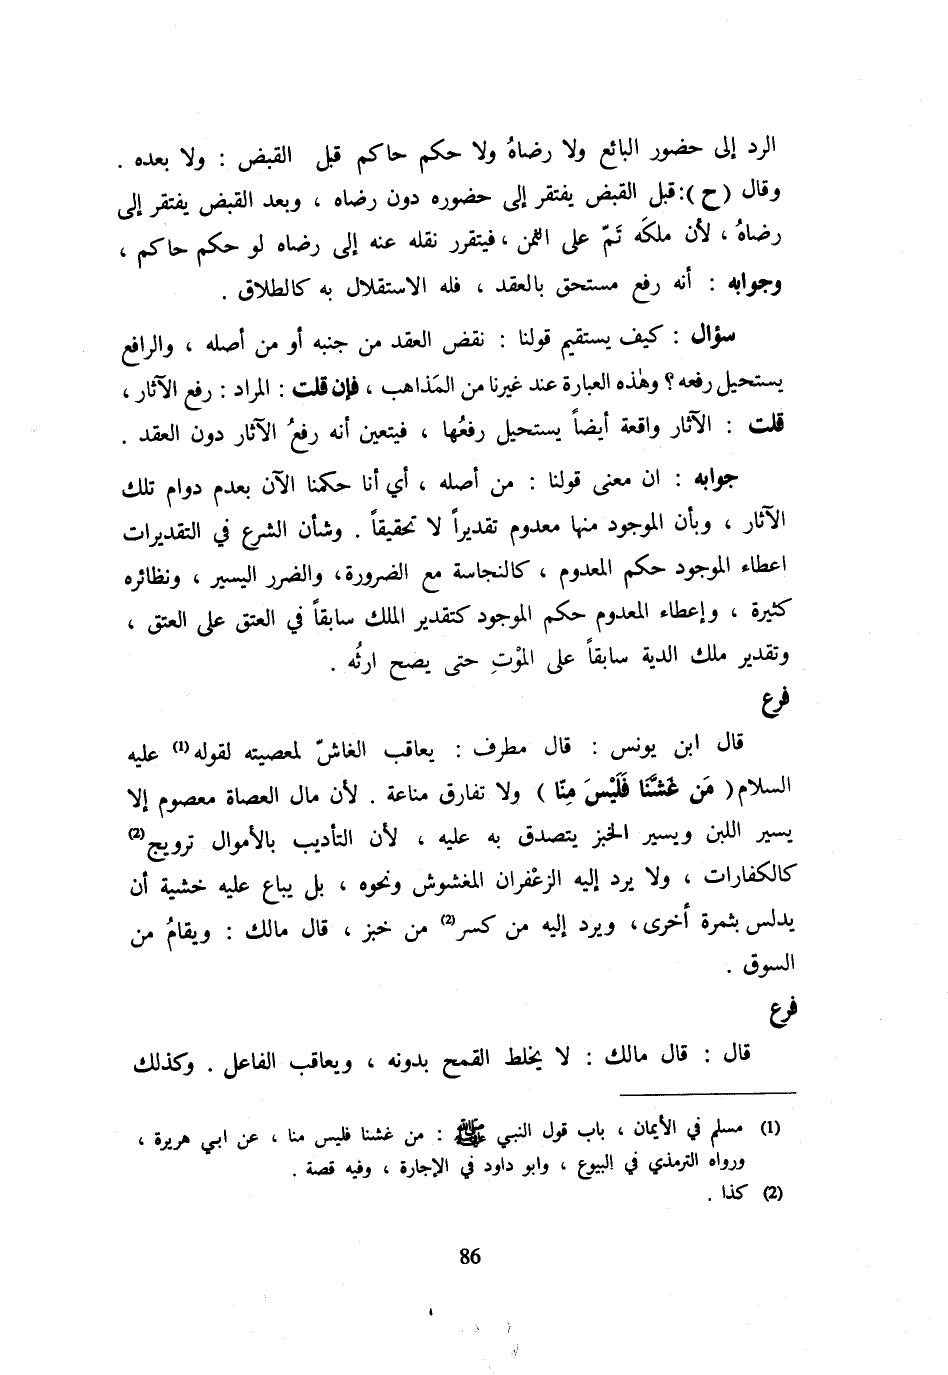 الرد إلى حضور البائع ولا رضاهُ ولا حكم حاكم قبل القبض : ولا بعده .
وقال (ح): قبل القبض يفتقر إلى حضوره دون رضاه ، وبعد القبض يفتقر إلى
رضاهُ ، لأن ملكَه تَمّ على الثمن ، فيتقرر نقله عنه إلى رضاه لو حكم حاكم ،
وجوابه : أنه رفع مستحق بالعقد ، فله الاستقلال به كالطلاق .
سؤال : كيف يستقيم قولنا : نقض العقد من جنبه أو من أصله ، والرافع
يستحيل رفعه ؟ وهٰذه العبارة عند غيرنا من المَذاهب ، فإن قلت : المراد : رفع الآثار ،
قلت : الآثار واقعة أيضاً يستحيل رفعُها ، فيتعين أنه رفعُ الآثار دون العقد .
جوابه : ان معنى قولنا : من أصله ، أي أنا حكمنا الآن بعدم دوام تلك
الآثار ، وبأن الموجود منها معدوم تقديراً لا تحقيقاً . وشأن الشرع في التقديرات
اعطاء الموجود حكم المعدوم ، كالنجاسة مع الضرورة، والضرر اليسير ، ونظائره
كثيرة ، وإعطاء المعدوم حكم الموجود كتقدير الملك سابقاً في العتق على العتق ،
وتقدير ملك الدية سابقاً على المؤتِ حتى يصح ارثُه .
فرع
قال ابن يونس : قال مطرف : يعاقب الغاشّ لمعصيته لقوله (1) عليه
السلام ( مَن غَشَّنَا فَلَيْسَ مِنّا ) ولا تفارق مناعة . لأن مال العصاة معصوم إلا
يسير اللبن ويسير الخبز يتصدق به عليه ، لأن التأديب بالأموال ترويج (2)
كالكفارات ، ولا يرد إليه الزعْفران المغشوش ونحوه ، بل يباع عليه خشية أن
يدلس بثمرة أخرى، ويرد إليه من كسر (2) من خبز ، قال مالك : ويقامُ من
السوق .
فرع
قال : قال مالك : لا يخلط القمح بدونه ، ويعاقب الفاعل . وكذلك
(1) مسلم في الأيمان ، باب قول النبي ﷺ : من غشنا فليس منا ، عن ابي هريرة ،
ورواه الترمذي في البيوع ، وابو داود في الإجارة ، وفيه قصة .
(2) كذا .
86